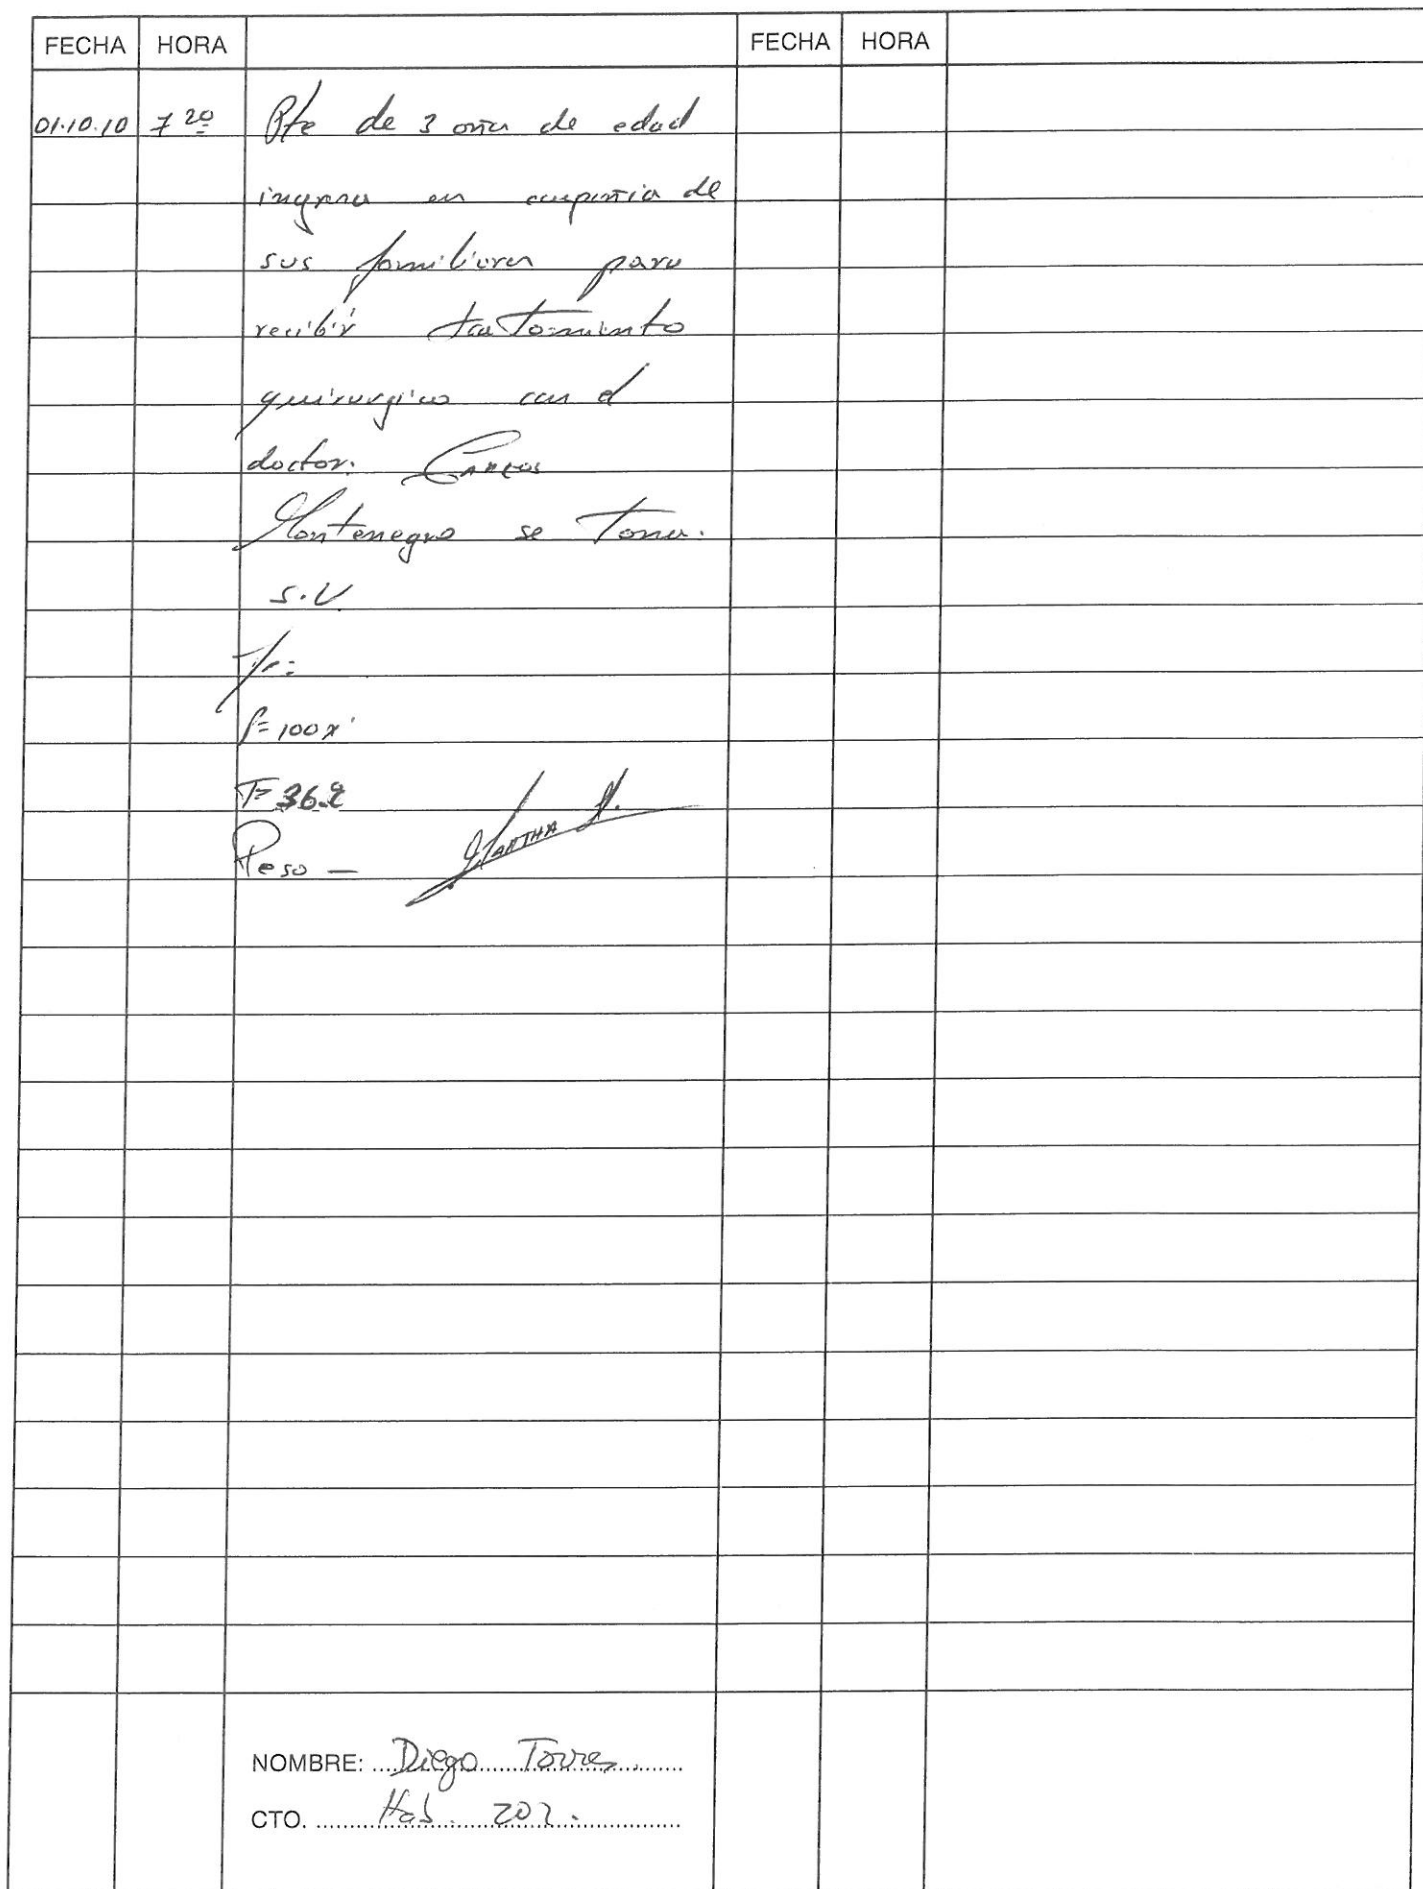 FECHA HORA FECHA HORA
01.10.10 7 20 Pte de 3 años de edad
ingresa en compañia de
sus familiares para
recibir tratamiento
quirurgico con el
doctor. Carlos
Montenegro se Toma.
S.V
T/A:
P= 100 x'
T= 36.2
Peso — Martha
NOMBRE: Diego Torres
CTO. Hab. 202.